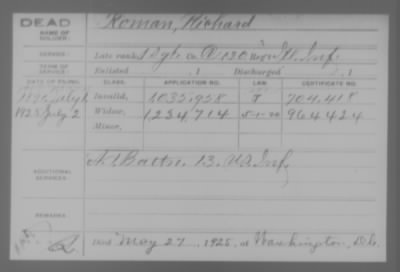 DEAD
Roman, Richard
NAME OF SOLDIER:
SERVICE: Late rank, 1 Sgt. Co. D, 130 Reg't Ill. Inf.
TERM OF SERVICE: Enlisted , 1 Discharged , 1
DATE OF FILING. CLASS. APPLICATION NO. LAW. CERTIFICATE NO.
July Invalid, 1035,958 704,418
1925 July 2 Widow, 1234714 5-1-20 964424
Minor,
ADDITIONAL SERVICES: Inf,
REMARKS:
Died May 27, 1925, at Washington, D.C.